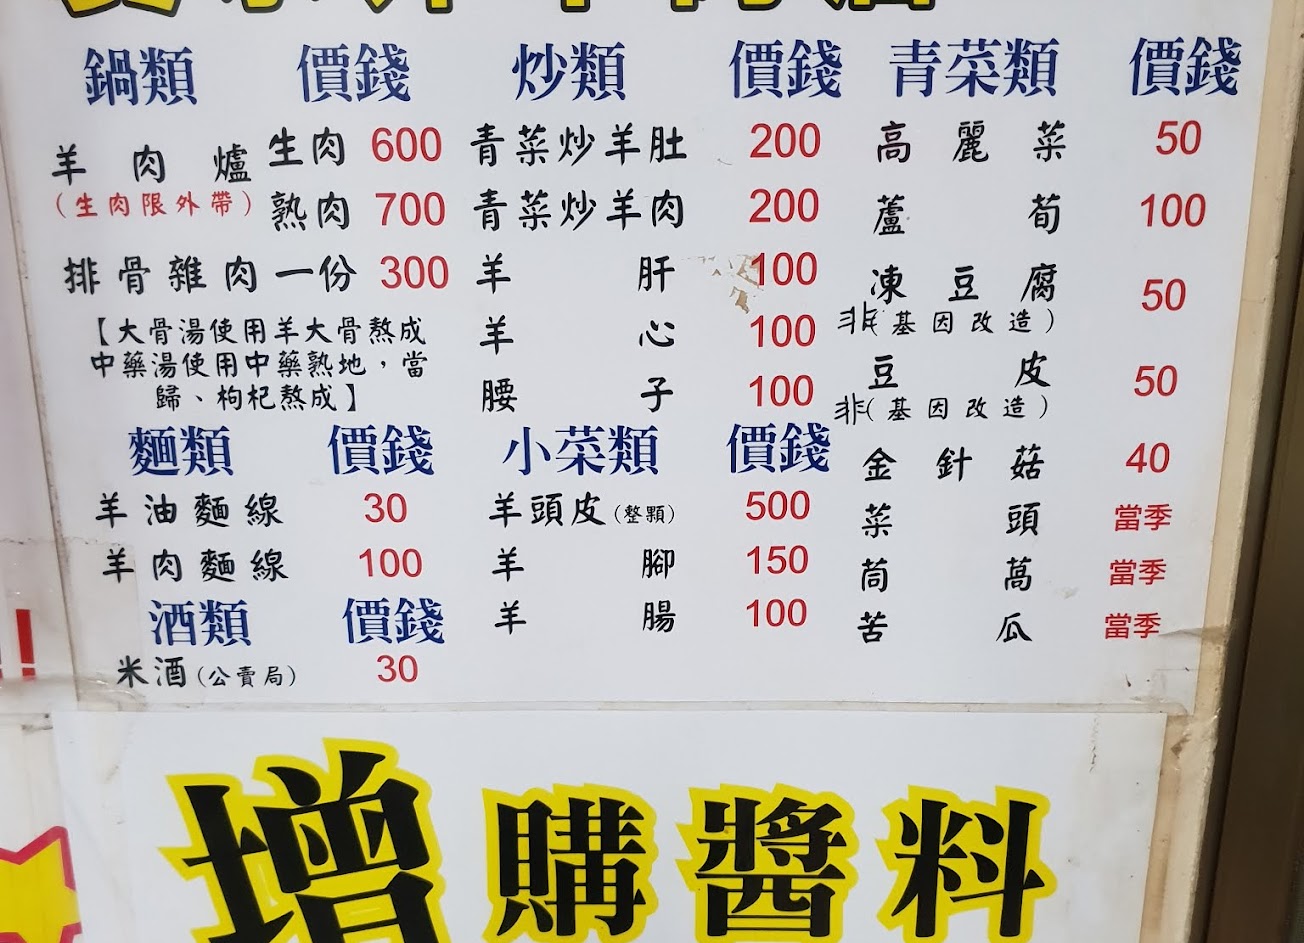 鍋類 價錢
羊肉爐 生肉 600
(生肉限外帶) 熟肉 700
排骨雜肉一份 300
【大骨湯使用羊大骨熬成
中藥湯使用中藥熟地，當
歸、枸杞熬成】
麵類 價錢
羊油麵線 30
羊肉麵線 100
酒類 價錢
米酒(公賣局) 30
炒類 價錢
青菜炒羊肚 200
青菜炒羊肉 200
羊肝 100
羊心 100
腰子 100
小菜類 價錢
羊頭皮(整顆) 500
羊腳 150
羊腸 100
青菜類 價錢
高麗菜 50
蘆荀 100
凍豆腐 50
非(基因改造)
豆皮 50
非(基因改造)
金針菇 40
菜頭 當季
茼萵 當季
苦瓜 當季
增購醬料